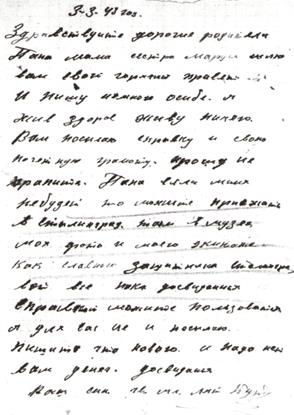 3-3-43 год.
Здравствуите дорогие родители
Папа мама сестра Маруся шлю
вам свой горячий привет
И пишу немного о себе. я
жив здоров живу ничего.
Вам посылаю справку и свою
почетную грамоту. прошу не
храните. Папа если меня
небудет то можите приехать
в сталинград там в музеи
моя фото и моего экипажа
Как славных защитника сталинграда
вот все пока досвидания
справкой можите ползоватся
я для вас ее и посилаю.
пишите что нового. и надо ли
вам денег. досвидания
Ваш сын гв. мл. лит